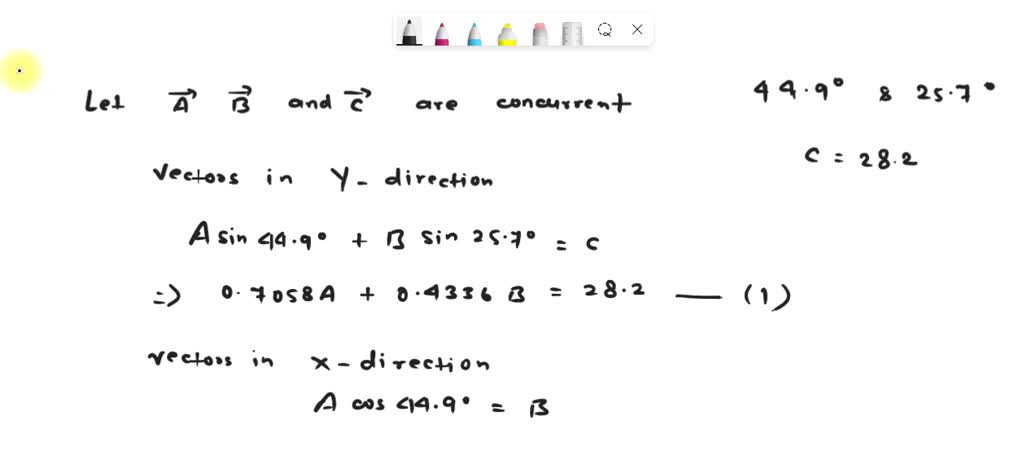 Let A⃗ B⃗ and C⃗ are concurrent
44.9° & 25.7°
C = 28.2
vectors in Y-direction
A sin 44.9° + B sin 25.7° = C
=> 0.7058A + 0.4336 B = 28.2 — (1)
vectors in x-direction
A cos 44.9° = B